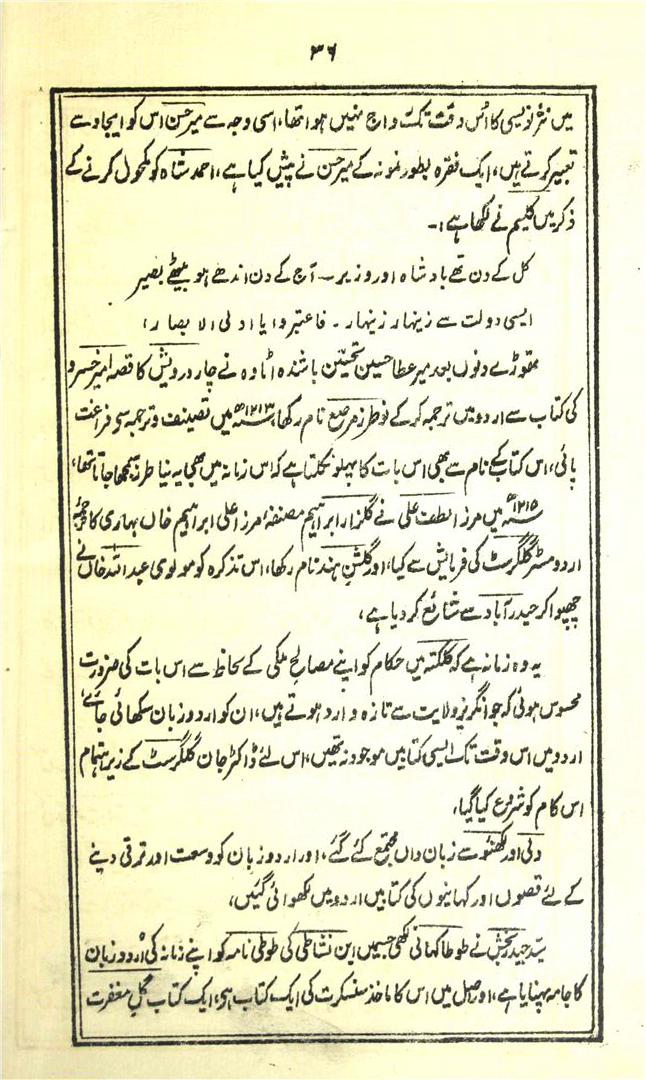 ۳۶
میں نثر نویسی کا اُس وقت تک رواج نہیں ہوا تھا، اسی وجہ سے میر حسن اس کو ایجاد سے
تعبیر کرتے ہیں، ایک فقرہ بطور نمونہ کے میر حسن نے پیش کیا ہے، احمد شاہ کو مکحول کرنے کے
ذکر میں کلیم نے لکھا ہے:۔
کل کے دن تھے بادشاہ اور وزیر۔ آج کے دن اندھے ہو بیٹھے بصیر
ایسی دولت سے زینہار زینہار۔ فاعتبروا یا اولی الابصار،
تھوڑے دنوں بعد میر عطا حسین تحسین باشندہ اٹاوہ نے چار درویش کا قصہ امیر خسرو
کی کتاب سے اردو میں ترجمہ کرکے نوطرز مرصع نام رکھا، ۱۲۱۳ھ میں تصنیف و ترجمہ سے فراغت
پائی، اس کتاب کے نام سے بھی اس بات کا پہلو نکلتا ہے کہ اس زمانہ میں بھی یہ نیا طرز سمجھا جاتا تھا،
۱۲۱۵ھ میں مرزا لطف علی نے گلزار ابراہیم مصنفہ مرزا علی ابراہیم خاں بہاری کا ترجمہ
اردو مسٹر گلگرسٹ کی فرمایش سے کیا، اور گلشن ہند نام رکھا، اس تذکرہ کو مولوی عبداللہ خاں نے
چھپوا کر حیدرآباد سے شائع کر دیا ہے،
یہ وہ زمانہ ہے کہ کلکتہ میں حکام کو اپنے مصالح ملکی کے لحاظ سے اس بات کی ضرورت
محسوس ہوئی کہ جو انگریز ولایت سے تازہ وارد ہوتے ہیں، ان کو اردو زبان سکھائی جائے،
اردو میں اس وقت تک ایسی کتابیں موجود نہ تھیں، اس لئے ڈاکٹر جان گلگرسٹ کے زیر اہتمام
اس کام کو شروع کیا گیا،
دلی اور لکھنؤ سے زبان داں مجتمع کئے گئے، اور اردو زبان کو وسعت اور ترقی دینے
کے لئے قصوں اور کہانیوں کی کتابیں اردو میں لکھوائی گئیں،
سید حیدر بخش نے طوطا کہانی لکھی جسمیں ابن نشاطی کی طوطی نامہ کو اپنے زمانہ کی اُردو زبان
کا جامہ پہنایا ہے، اور اصل میں اس کا ماخذ سنسکرت کی ایک کتاب ہی، ایک کتاب گل مغفرت